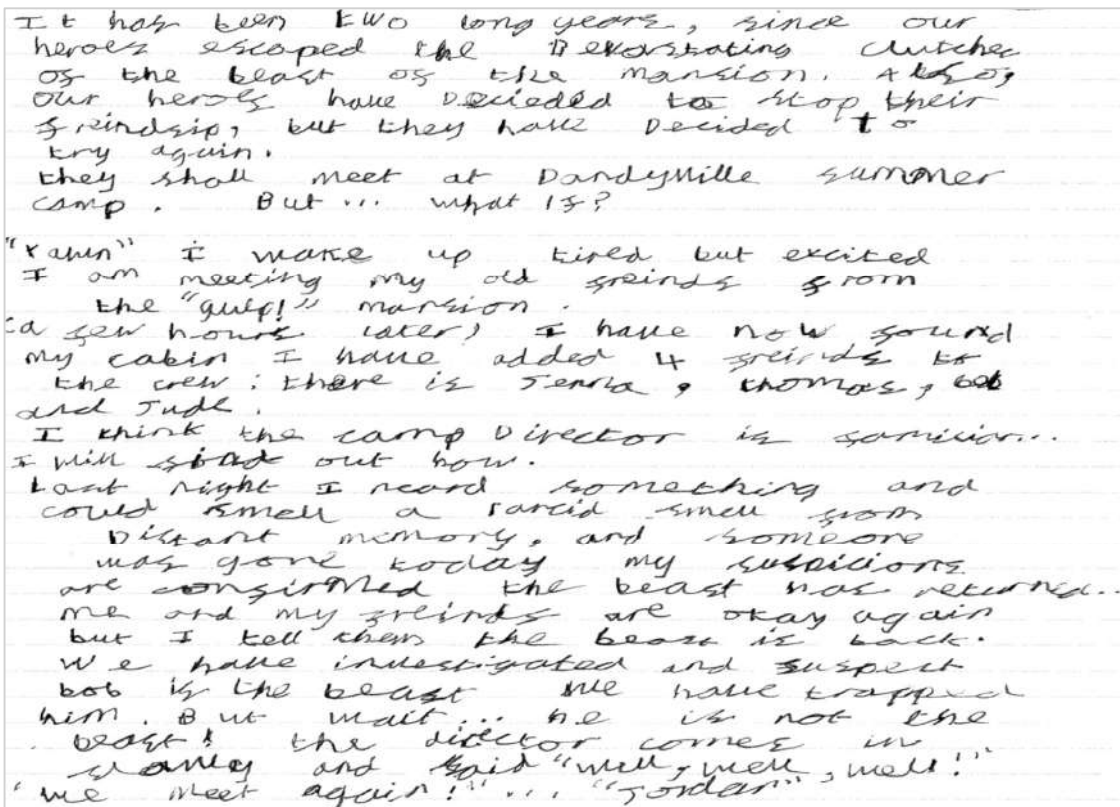 It has been two long years, since our
heroes escaped the Devorstating clutches
of the beast of the mansion. Also,
our heroes have Decieded to stop their
freindsip, but they have Decided to
try again.
they shall meet at Dandyville summer
camp. But... what If?
"Yawn" I wake up tired but excited
I am meeting my old freinds from
the "gulp!" mansion.
(a few hours later) I have now found
my cabin I have added 4 freinds to
the crew: there is Jenna, thomas, bob
and Jude.
I think the camp Director is familiar...
I will find out how.
Last night I heard something and
could smell a rancid smell from
Distant memory, and someone
was gone today my suspicions
are confirmed the beast has returned...
me and my freinds are okay again
but I tell them the beast is back.
We have investigated and suspect
bob is the beast we have trapped
him. But wait... he is not the
beast! the director comes in
and said "well, well, well!"
"we meet again!"... "Jordar"